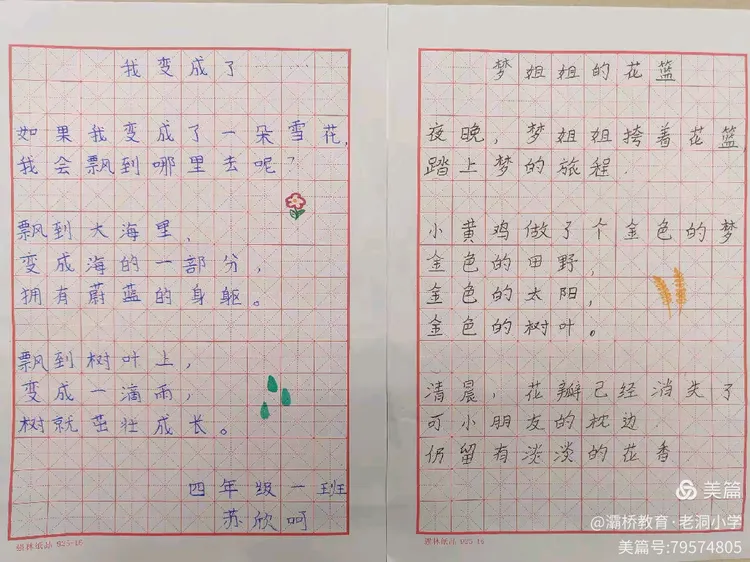 我变成了
如果我变成了一朵雪花，
我会飘到哪里去呢？
飘到大海里，
变成海的一部分，
拥有蔚蓝的身躯。
飘到树叶上，
变成一滴雨，
树就茁壮成长。
四年级一班
苏欣呵
梦姐姐的花篮
夜晚，梦姐姐挎着花篮，
踏上梦的旅程.
小黄鸡做了个金色的梦
金色的田野，
金色的太阳，
金色的树叶。
清晨，花瓣已经消失了
可小朋友的枕边.
仍留有淡淡的花香.
美篇
@灞桥教育·老洞小学
美篇号:79574805